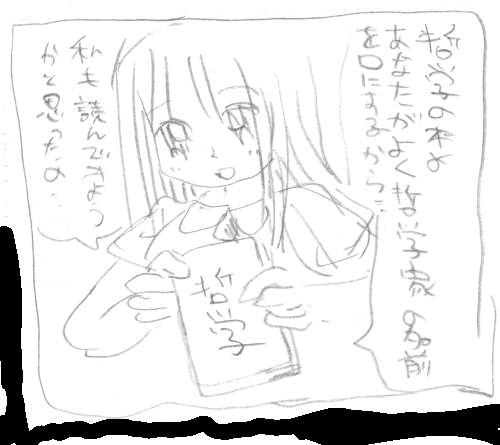 哲学の本よ
あなたがよく哲学家の名前
を口にするから…
私も読んでみよう
かと思ったの…
哲学